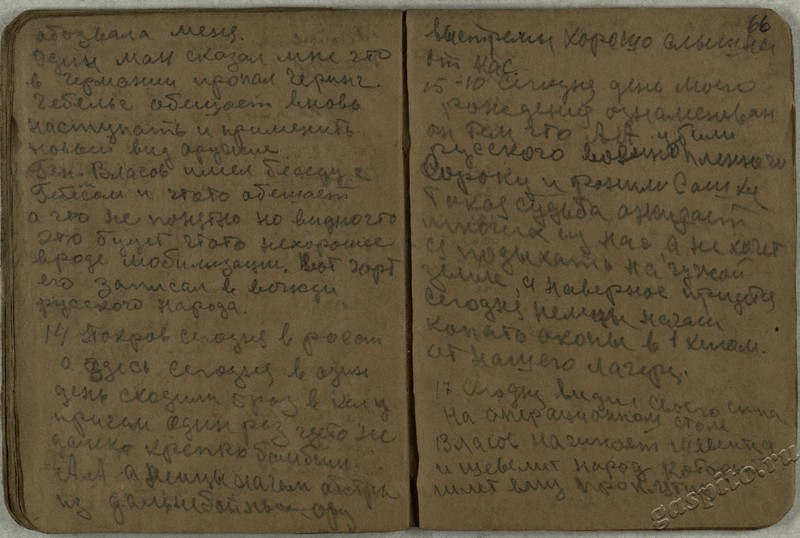 обозвала меня.
Один ман сказал мне что
в Германии пропал Геринг.
Гебельс обещает вновь
наступать и применить
новый вид оружия
Ген. Власов имел беседу с
и что то обещает
а что не понятно но видно что
это будет что то нехорошее
вроде мобилизации. Вот чорт
его записал в вожди
русского народа.
14 Покров сегодня в
а здесь сегодня в один
день сходили 8 раз в
причем один раз где то не
далеко крепко бомбили
А.А а немцы начали
из дальнобойных
66
выстрелы хорошо слышны
от нас
15-10 Сегодня день моего
рождения ознаменован
он тем что А.А. убили
русского военнопленного
Сороку и ранили Сашку
Такая судьба ожидает
многих из нас, а не хочет
ся подыхать на чужой
земле, а наверное придется
Сегодня немцы начали
копать окопы в 1 килом.
от нашего лагеря.
17 Сегодня видел своего
на операционном столе
Власов начинает шевелится
и шевелит народ который
шлет ему проклятия
gaspito.ru